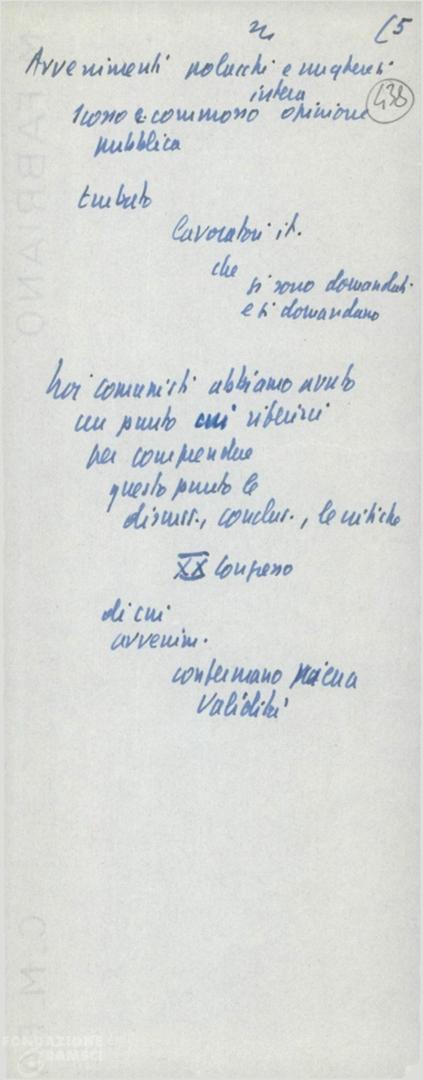 (5
438
Avvenimenti polacchi e ungheresi
intera
scosso e commosso opinione
pubblica
turbato
lavoratori it.
che
si sono domandati
e si domandano
noi comunisti abbiamo avuto
un punto cui riferirci
per comprendere
questo punto le
discuss., conclus., le critiche
XX Congresso
di cui
avvenim.
confermano piena
validità
FABRIANO
C.M.
FONDAZIONE
GRAMSCI